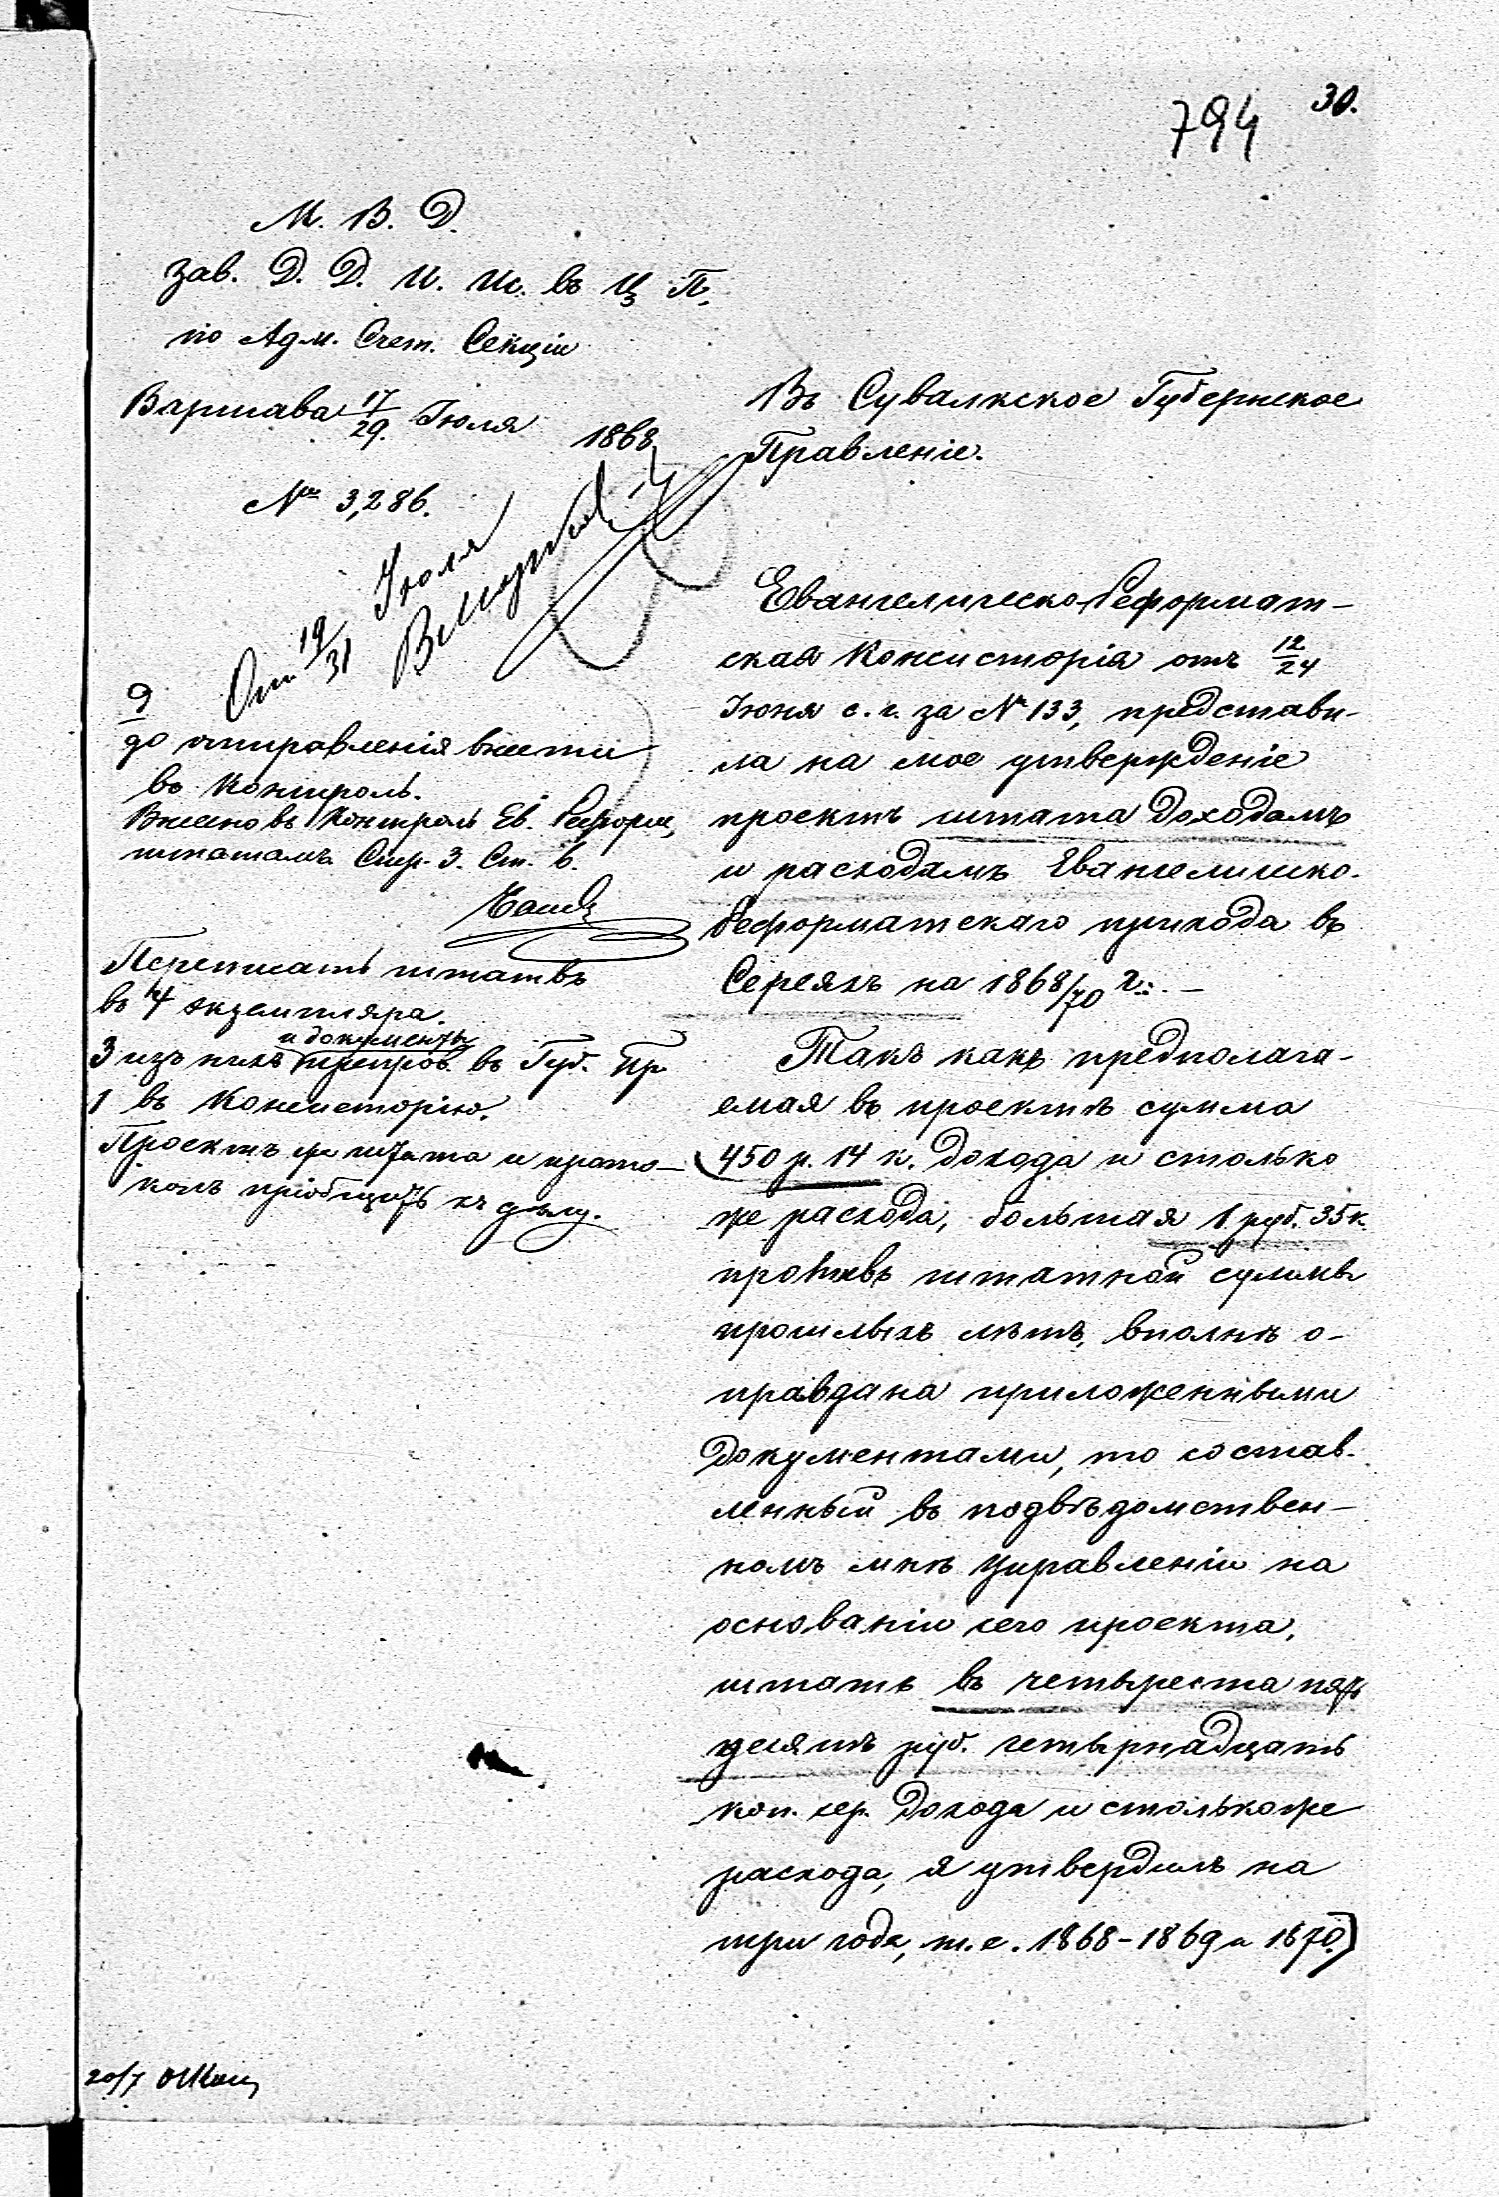 794
30.
М. В. Д.
Зав. Д. Д. И. И. въ Ц П.
по Адм. Счет. Секціи
Варшава 17/29. Іюля 1868
№ 3,286.
Въ Сувалкское Губернское
Правленіе.
От. 19/31 Іюля
9
до отправленія внести
въ Контроль.
Внесено въ Контроль Ев. Реформ.
штатамъ Стр. 3. Ст. 6.
Переписать штатъ
въ 4 экземпляра.
и документы
3 изъ нихъ препров. въ Губ. Пр
1 въ Консисторію.
Проектъ штата и прото-
колъ пріобщить къ дѣлу.
Евангелическо-Реформат-
ская Консисторія отъ 12/24
Іюня с. г. за № 133, представи-
ла на мое утвержденіе
проектъ штата доходамъ
и расходамъ Евангелическо-
Реформатскаго прихода въ
Сереяхъ на 1868/70 г.: –
Такъ какъ предполага-
емая въ проектѣ сумма
(450 р. 14 к. дохода и столько
же расхода, большая 1 руб. 35 к.
противъ штатной суммы
прошлыхъ лѣтъ, вполнѣ о-
правдана приложенными
документами, то состав-
ленный въ подвѣдомствен-
номъ мнѣ Управленіи на
основаніи сего проекта,
штатъ въ четыреста пять
десятъ руб. четырнадцать
коп. сер. дохода и столькоже
расхода, я утвердилъ на
три года, т. е. 1868-1869 и 1870.)
20/7